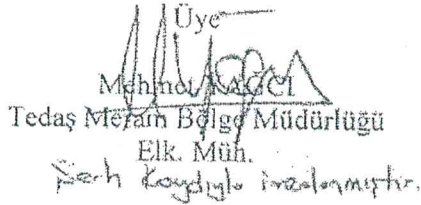 Üye
Mehmet YAĞCI
Tedaş Meram Bölge Müdürlüğü
Elk. Müh.
Şerh Kaydıyla imzalanmıştır.